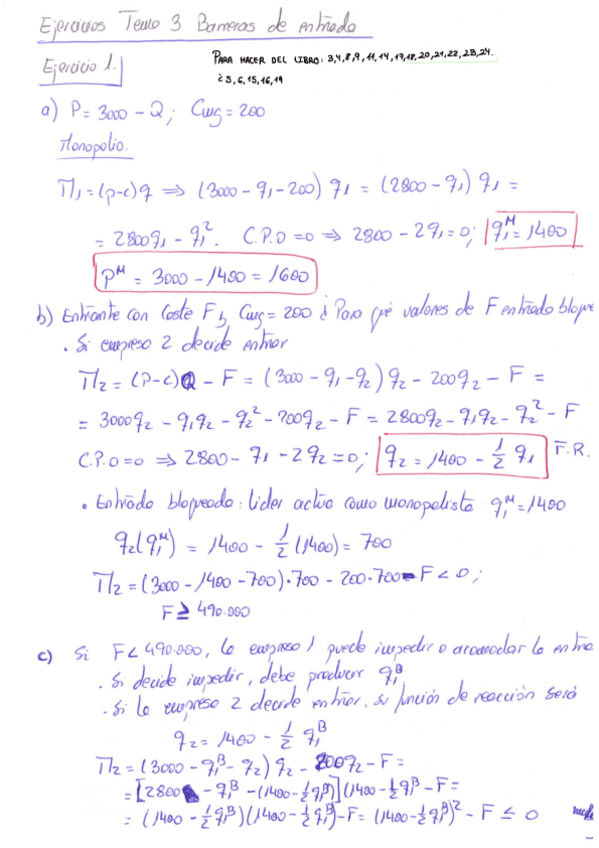 Ejercicios Tema 3 Barreras de entrada
Ejercicio 1.
PARA HACER DEL LIBRO: 3,4,8,9,11,14,17,18,20,21,22,23,24.
¿5,6,15,16,19
a) P = 3000 - Q; Cmg = 200
Monopolio.
Π₁ = (p-c)q ⇒ (3000 - q₁ - 200) q₁ = (2800 - q₁) q₁ =
= 2800q₁ - q₁². C.P.O = 0 ⇒ 2800 - 2q₁ = 0; q₁ᴹ = 1400
pᴹ = 3000 - 1400 = 1600
b) Entrante con Coste F y Cmg = 200 ¿Para qué valores de F entrada bloque
· Si empresa 2 decide entrar
Π₂ = (P-c)Q - F = (3000 - q₁ - q₂) q₂ - 200q₂ - F =
= 3000q₂ - q₁q₂ - q₂² - 200q₂ - F = 2800q₂ - q₁q₂ - q₂² - F
C.P.O = 0 ⇒ 2800 - q₁ - 2q₂ = 0; q₂ = 1400 - 1/2 q₁ F.R.
· Entrada bloqueada: líder actúa como monopolista q₁ᴹ = 1400
q₂(q₁ᴹ) = 1400 - 1/2 (1400) = 700
Π₂ = (3000 - 1400 - 700)·700 - 200·700 - F < 0;
F ≥ 490.000
c) Si F < 490.000, la empresa 1 puede impedir o acomodar la entra
· Si decide impedir, debe producir q₁ᴮ
· Si la empresa 2 decide entrar, su función de reacción será
q₂ = 1400 - 1/2 q₁ᴮ
Π₂ = (3000 - q₁ᴮ - q₂) q₂ - 200q₂ - F =
= [2800 - q₁ᴮ - (1400 - 1/2 q₁ᴮ)] (1400 - 1/2 q₁ᴮ - F =
= (1400 - 1/2 q₁ᴮ)(1400 - 1/2 q₁ᴮ) - F = (1400 - 1/2 q₁ᴮ)² - F ≤ 0